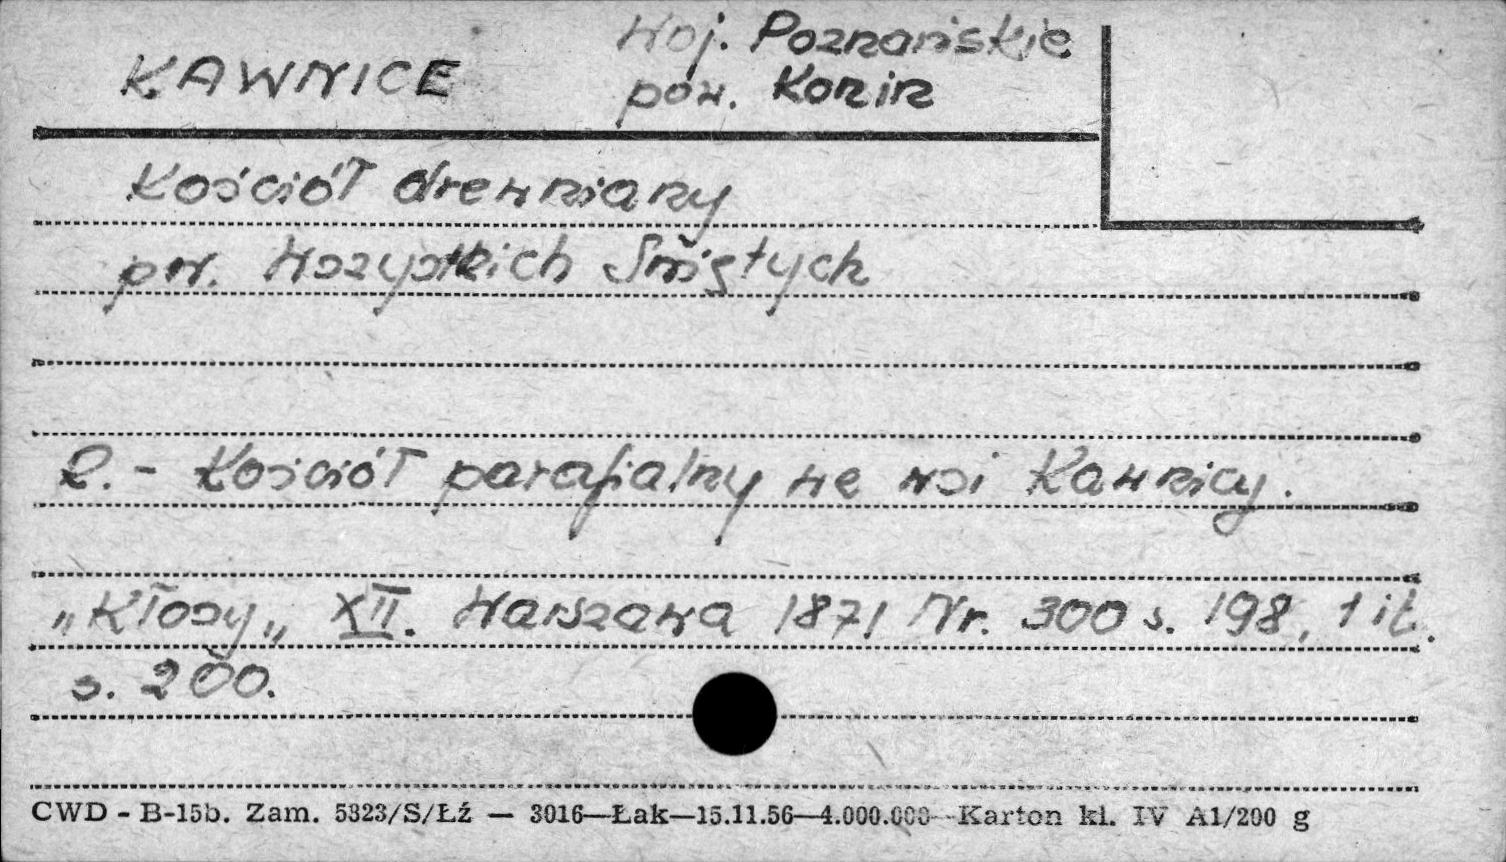 KAWNICE
woj. Poznańskie
pow. Konin
Kościół drewniany
pw. Wszystkich Świętych
R. - Kościół parafialny we wsi Kawnicy.
"Kłosy„ XII. Warszawa 1871 Nr. 300 s. 198, 1 il.
s. 200.
CWD - B-15b. Zam. 5823/S/Łź — 3016—Łak—15.11.56—4.000.000—Karton kl. IV A1/200 g